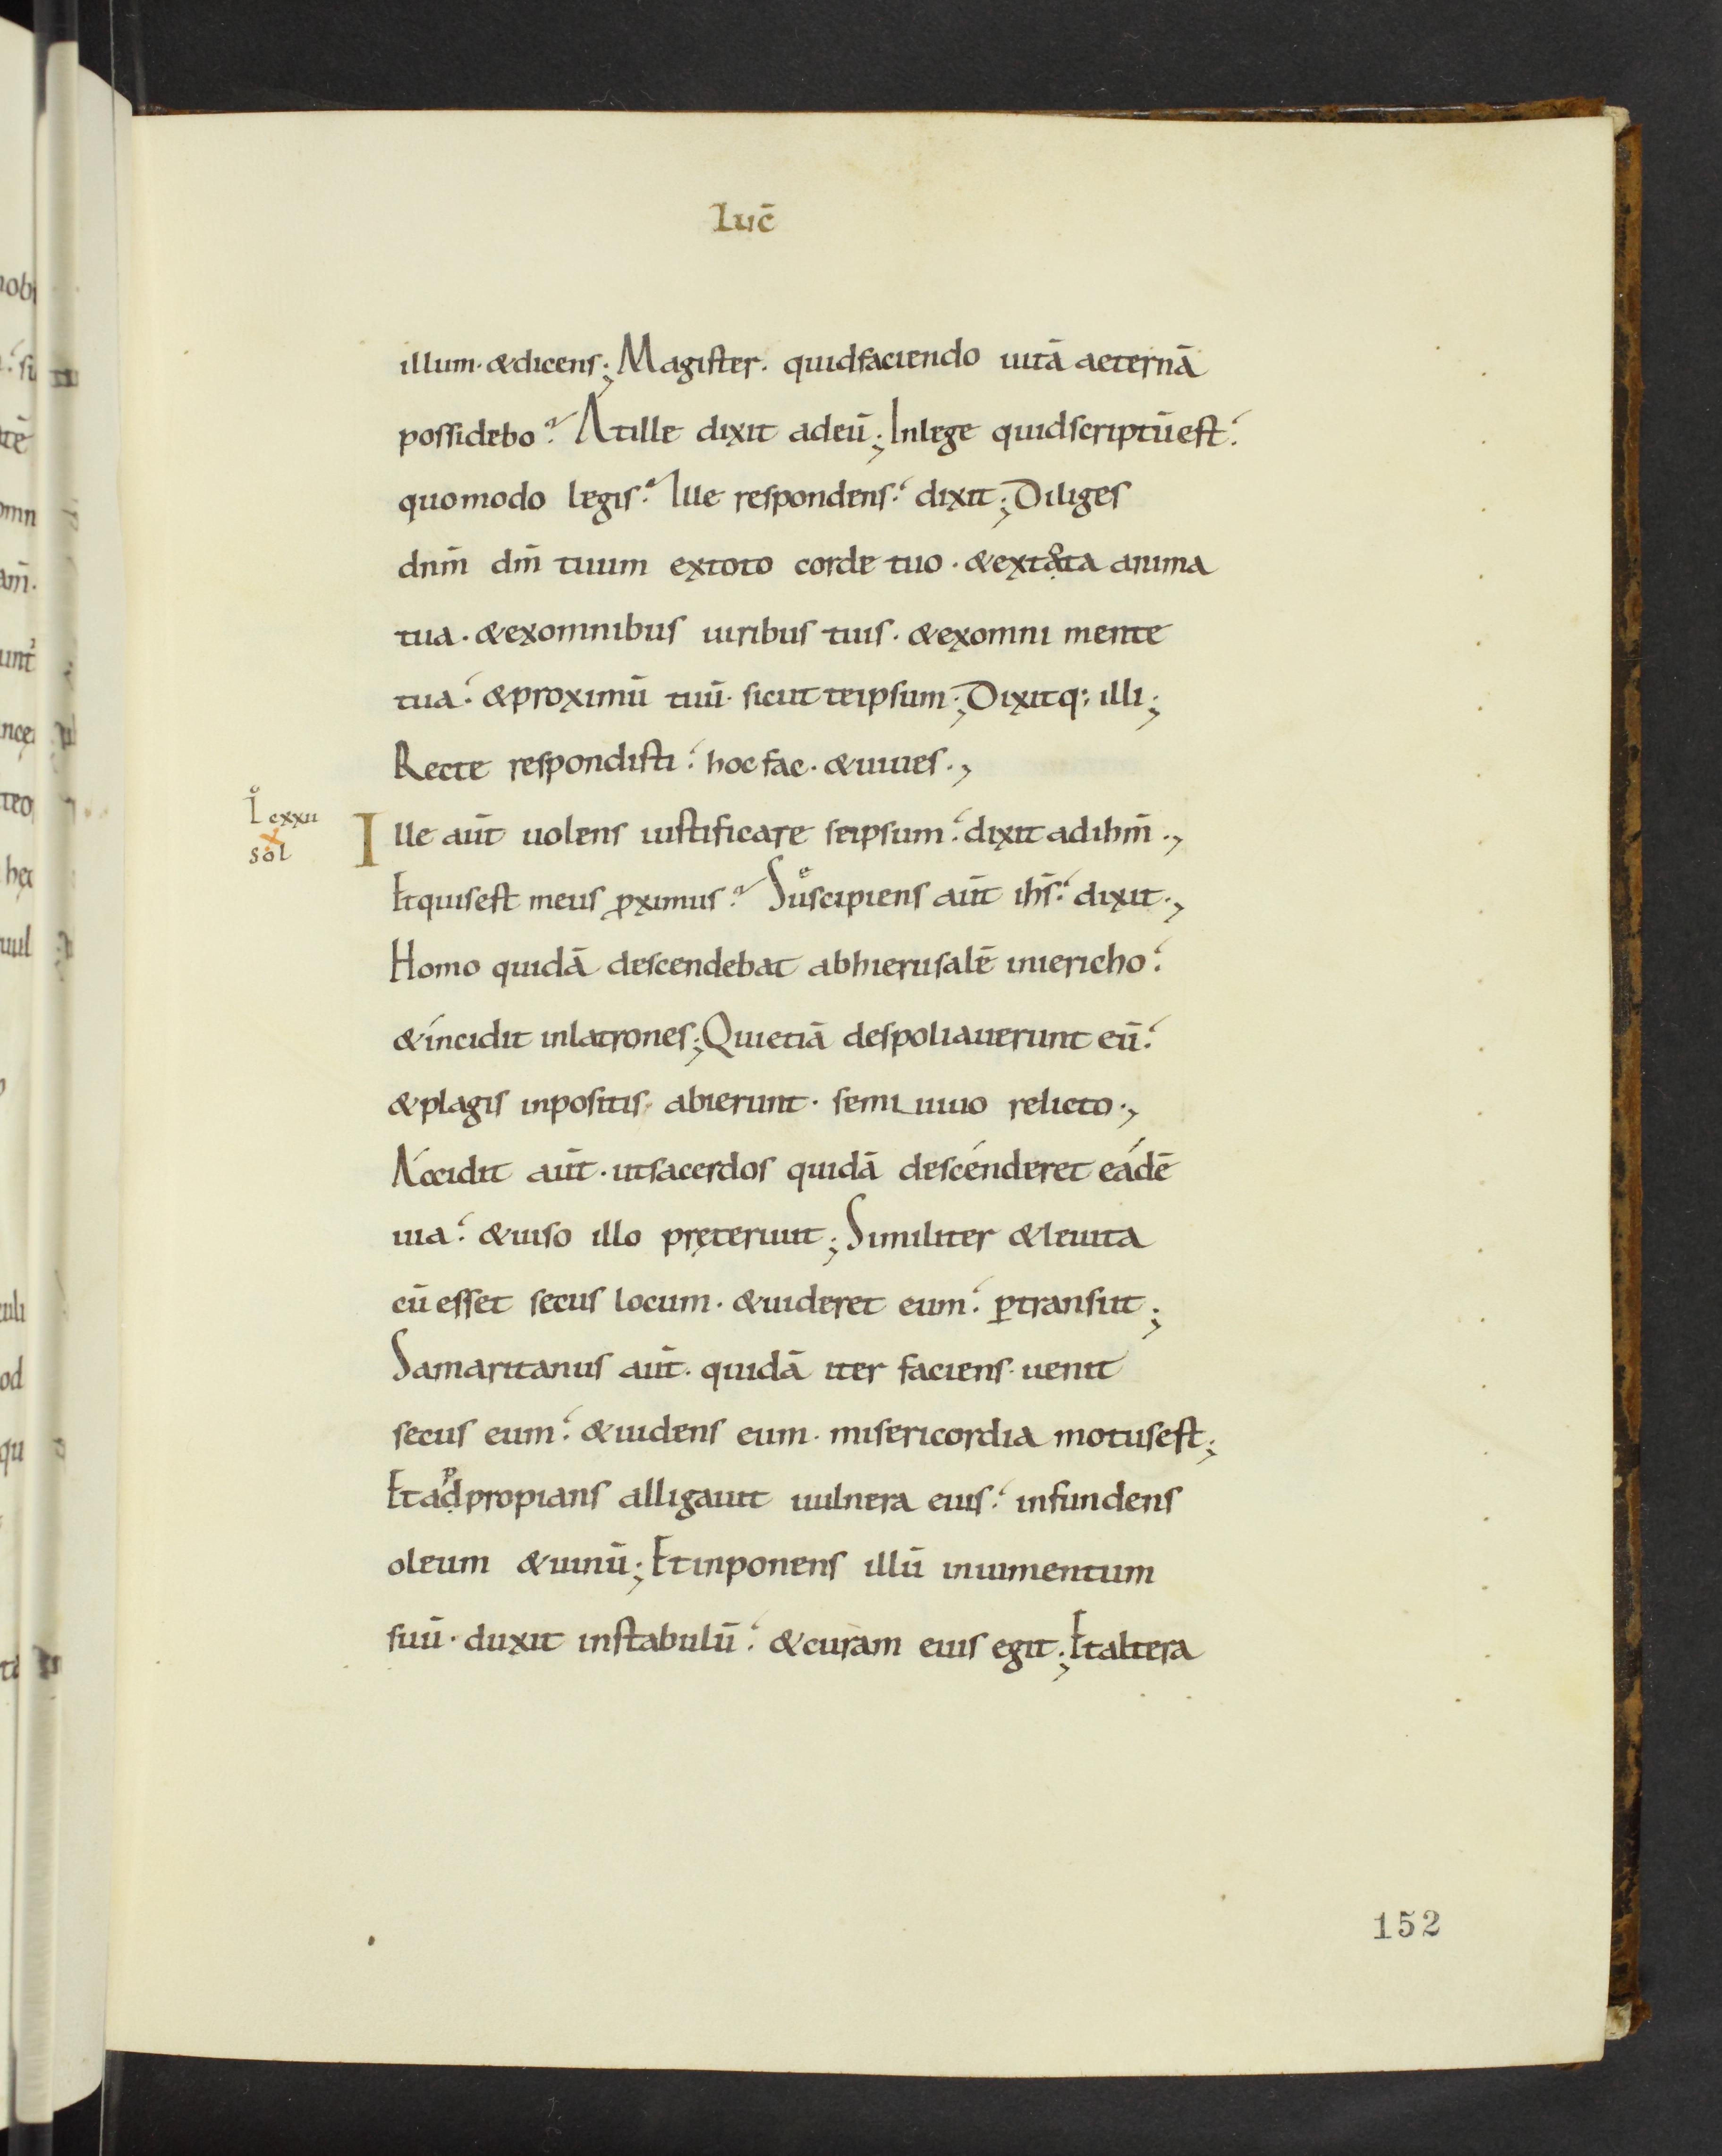 Luc̄
illum · & dicens ; Magister · quid faciendo uitā aeternā
possidebo ? At ille dixit ad eū ; In lege quid scriptū est ?
quomodo legis ? Ille respondens · dixit ; Diliges
dn̄m dm̄ tuum ex toto corde tuo · & ex tota anima
tua · & ex omnibus uiribus tuis · & ex omni mente
tua · & proximū tuū · sicut te ipsum ; Dixitq; illi ;
Recte respondisti · hoc fac · & uiues .,
L cxxii
x
sol
Ille aūt uolens iustificare se ipsum · dixit ad ihm̄ .,
Et quis est meus ꝓximus ? Suscipiens aūt ihs̄ · dixit .,
Homo quidā descendebat ab hierusalē in iericho ·
& incidit in latrones ; Qui etiā despoliauerunt eū ·
& plagis inpositis · abierunt · semi uiuo relicto .,
Accidit aūt · ut sacerdos quidā descénderet eádē
uia · & uiso illo pręteriuit ; Similiter & leuita
cū esset secus locum · & uideret eum · ꝑtransiit ;
Samaritanus aūt · quidā iter faciens · uenit
secus eum · & uidens eum · misericordia motus est ;
p
Et adpropians alligauit uulnera eius · infundens
oleum & uinū ; Et inponens illū in iumentum
suū · duxit in stabulū · & curam eius egit ; Et altera
152